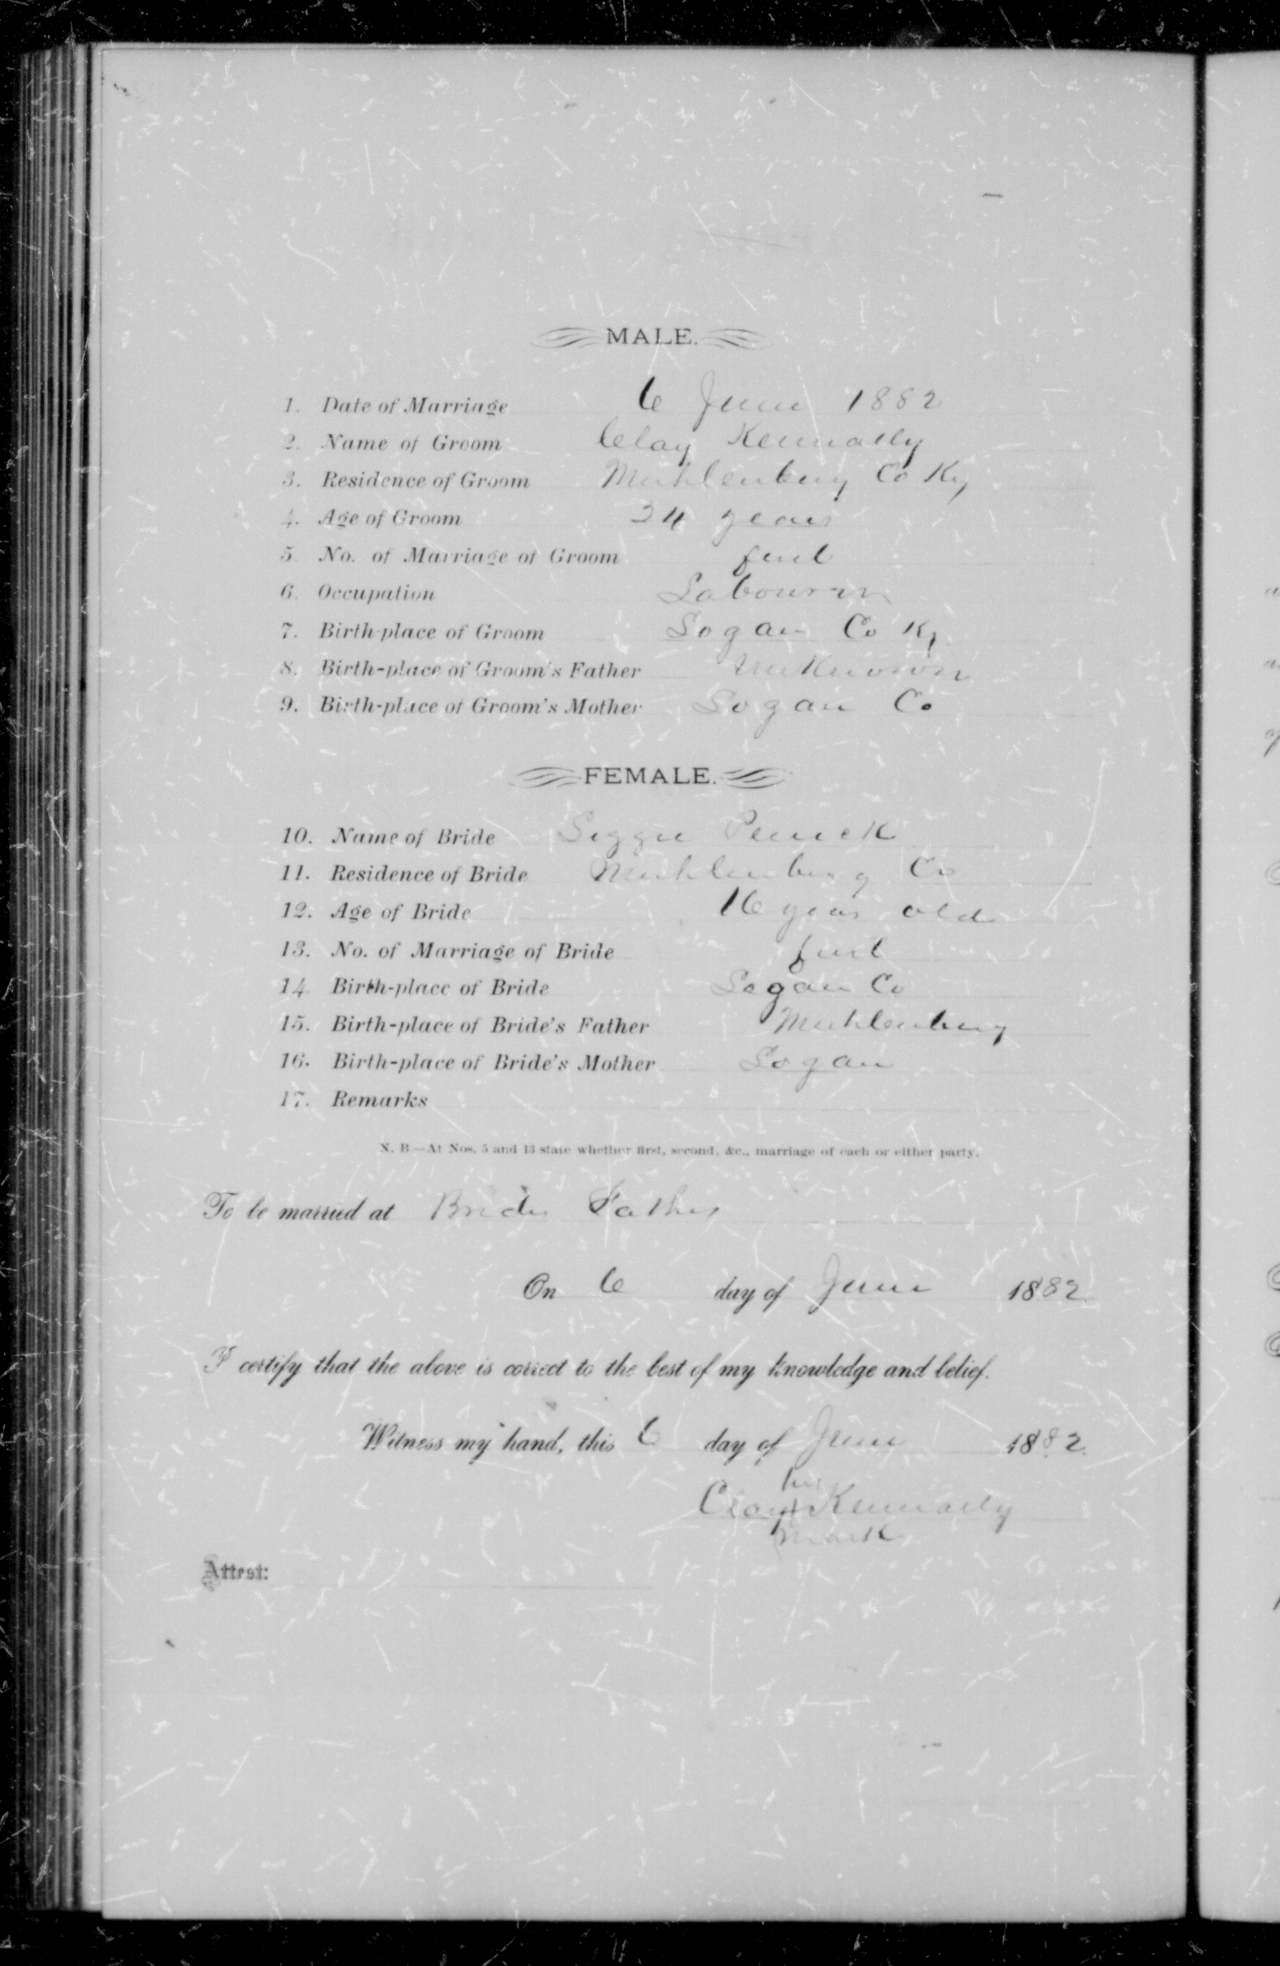 MALE.
1. Date of Marriage 6 June 1882
2. Name of Groom Clay Kennally
3. Residence of Groom Muhlenburg Co Ky
4. Age of Groom 24 years
5. No. of Marriage of Groom first
6. Occupation Labourer
7. Birth-place of Groom Logan Co Ky
8. Birth-place of Groom's Father Unknown
9. Birth-place of Groom's Mother Logan Co
FEMALE.
10. Name of Bride Lizzie Penick
11. Residence of Bride Muhlenburg Co
12. Age of Bride 16 years old
13. No. of Marriage of Bride first
14. Birth-place of Bride Logan Co
15. Birth-place of Bride's Father Muhlenburg
16. Birth-place of Bride's Mother Logan
17. Remarks
N. B.—At Nos. 5 and 13 state whether first, second, &c., marriage of each or either party.
To be married at Brides Fathers
On 6 day of June 1882
I certify that the above is correct to the best of my knowledge and belief.
Witness my hand, this 6 day of June 1882.
his
Clay X Kennally
mark
Attest: